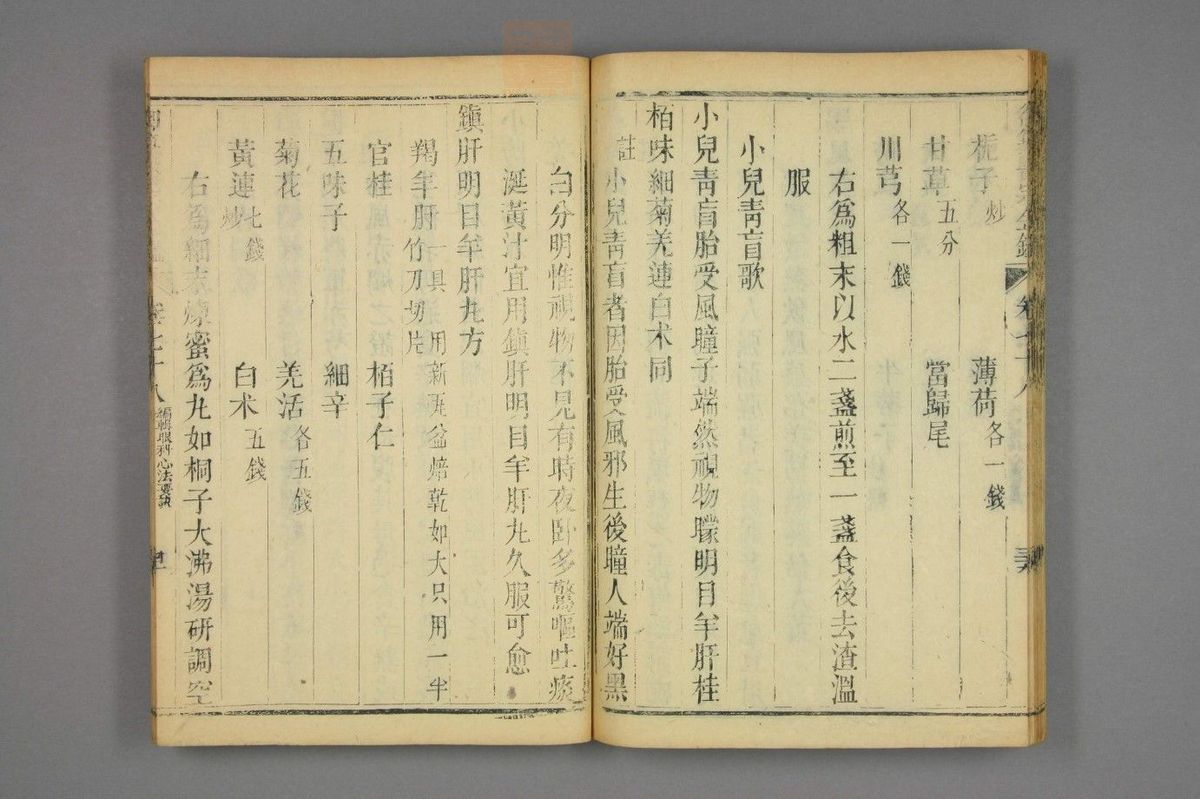 梔子炒 薄荷各一錢
甘草五分 當歸尾
川芎各一錢
右爲粗末以水二盞煎至一盞食後去渣溫
服
小兒靑盲歌
小兒靑盲胎受風瞳子端然視物矇明目羊肝桂
栢味細菊羌連白术同
註小兒靑盲者因胎受風邪生後瞳人端好黑
白分明惟視物不見有時夜臥多驚嘔吐痰
涎黃汁宜用鎭肝明目羊肝丸久服可愈
鎭肝明目羊肝丸方
羯羊肝一具用新瓦盆焙乾如大只用一半竹刀切片
官桂 栢子仁
五味子 細辛
菊花 羌活各五錢
黃連炒七錢 白术五錢
右爲細末煉蜜爲丸如桐子大沸湯硏調空
卷七十八 編輯眼科心法要訣